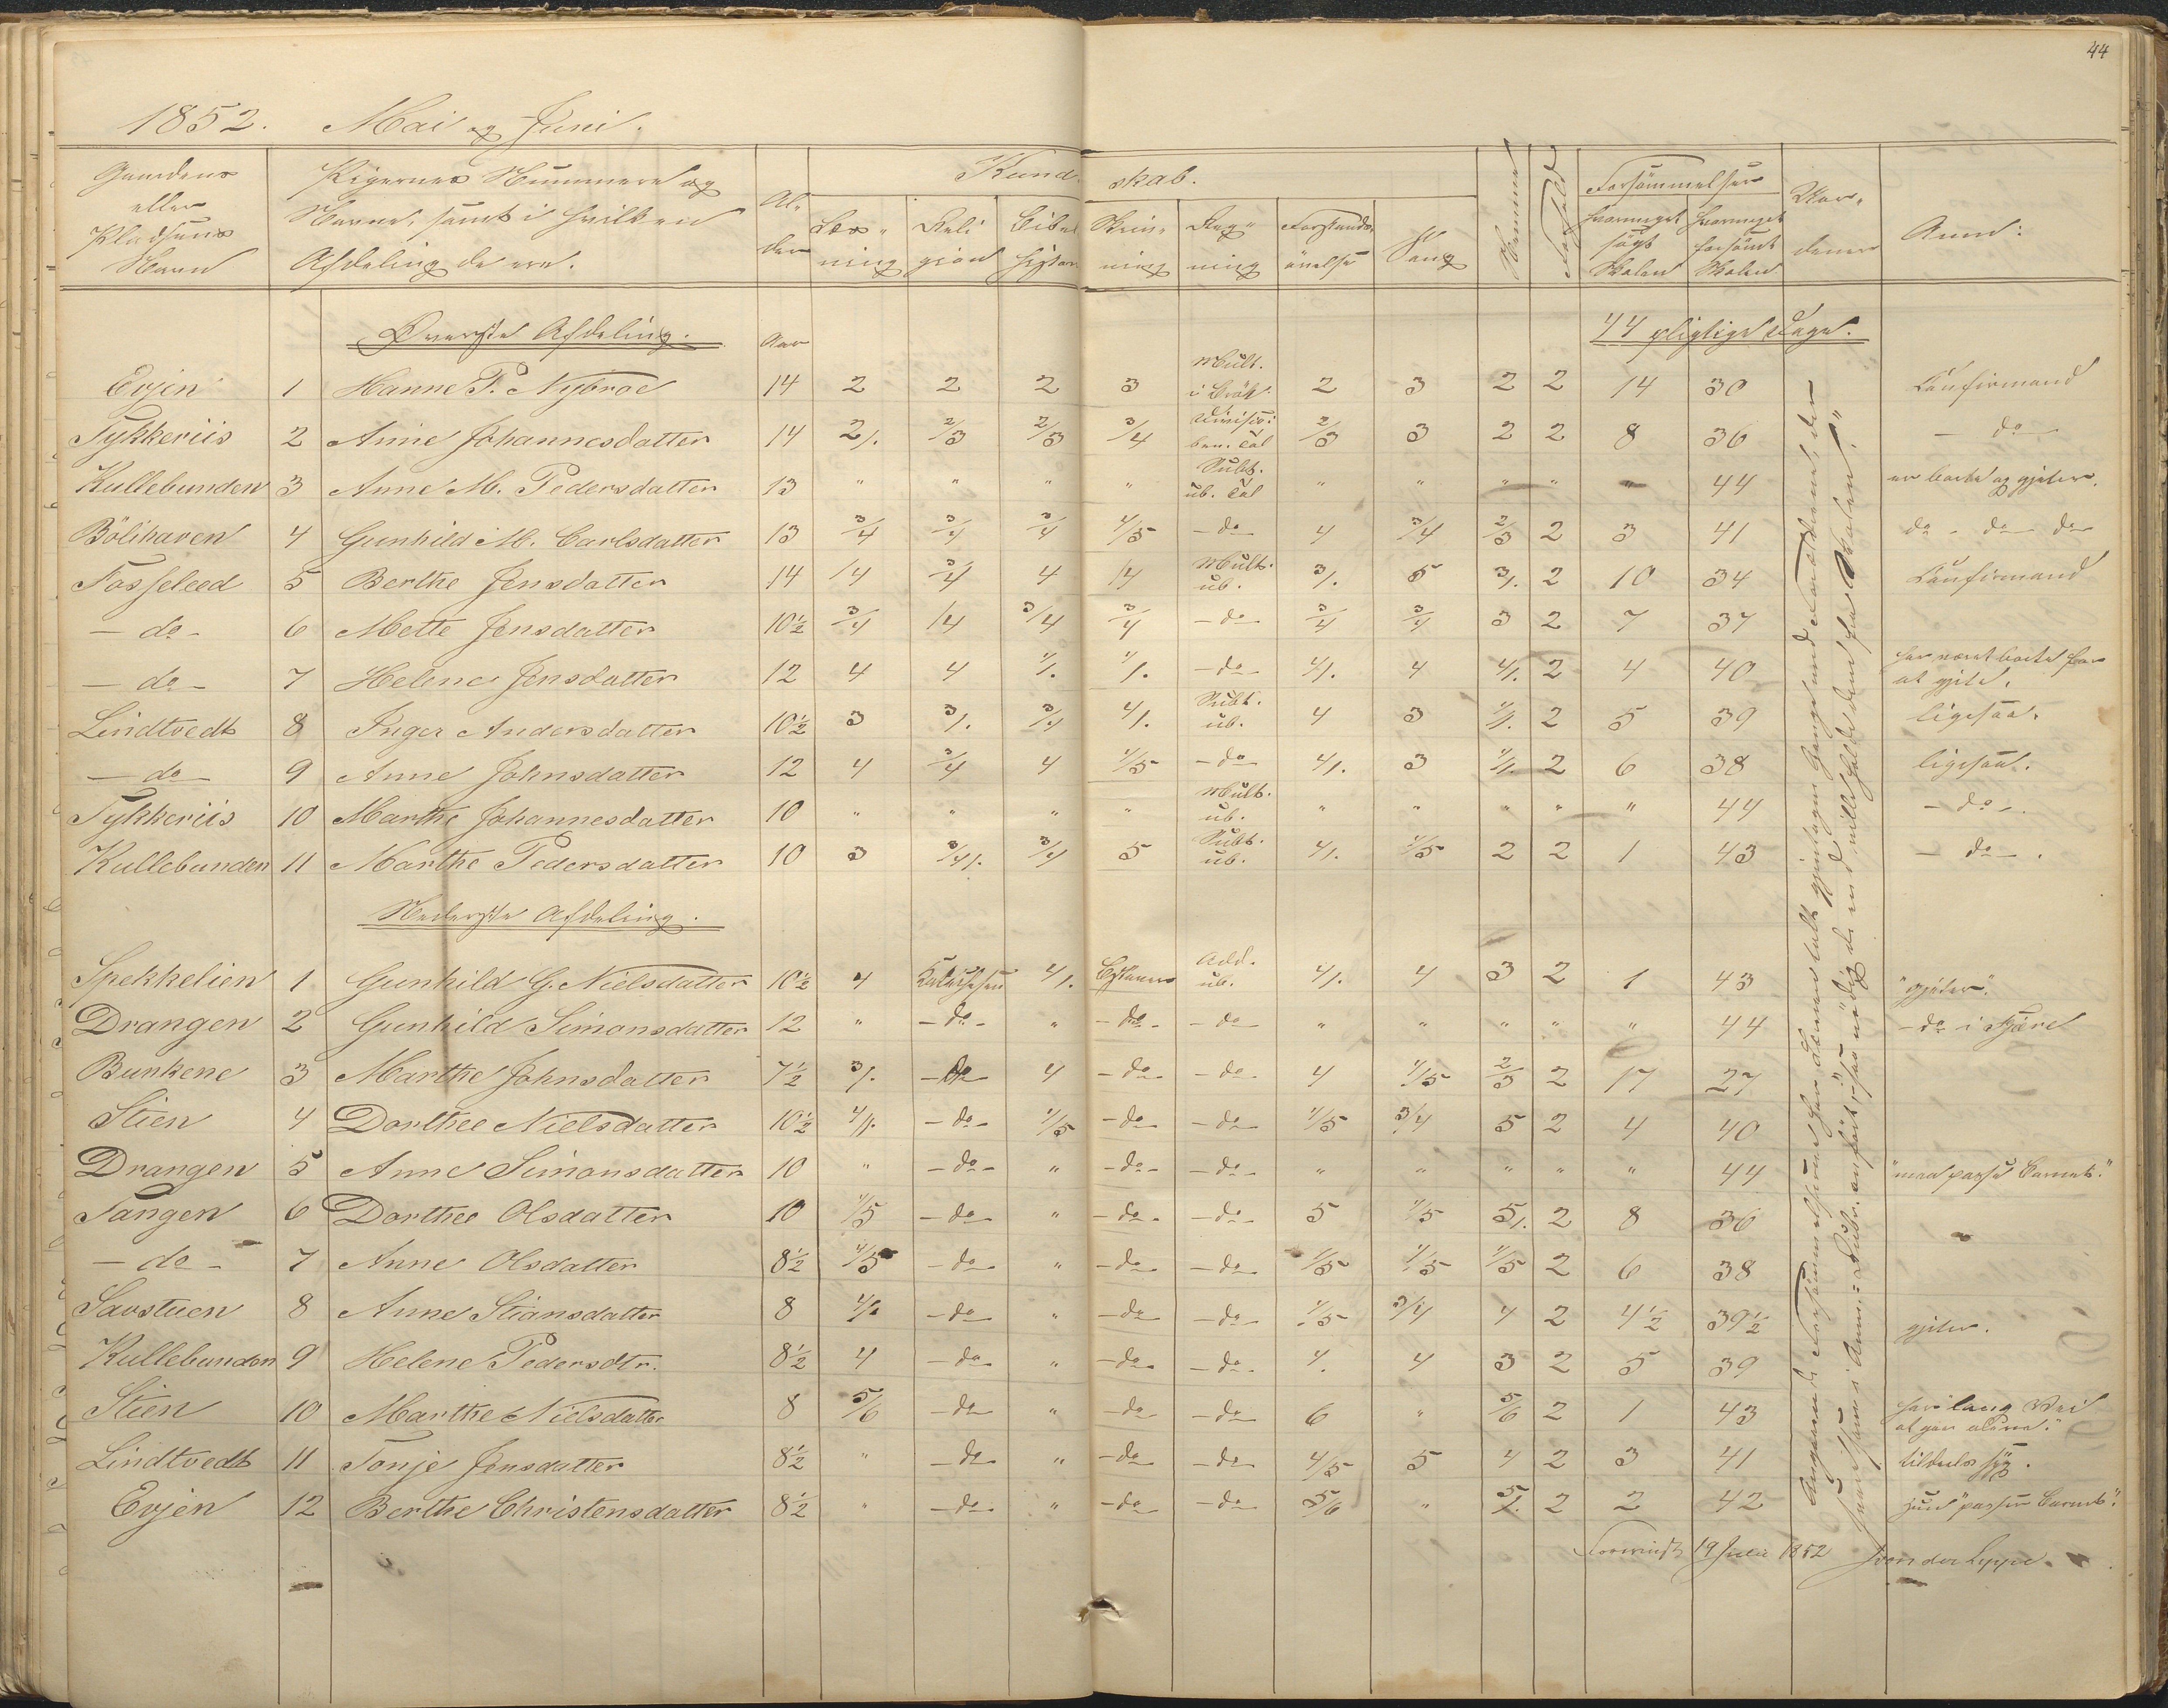 44
1852. Mai og Juni.
Gaardens eller Pladsens Navn
Pigernes Nummere og Navne, samt i hvilken Afdeling de ere.
Alder
Kundskab.
Læsning
Religion
Bibelhistor.
Skrivning
Regning
Forstandsøvelse
Sang
Nemme
Forhold
Forsømmelser
hvormeget søgt Skolen
hvormeget forsømt Skolen
Anm:
Øverste Afdeling. Aar 44 pligtige Dage.
Evjen 1 Hanne P. Nybroe 14 2 2 2 3 Mult. i Brøk. 2 3 2 2 14 30 Confirmand
Tykkeriis 2 Anne Johannesdatter 14 2/. 2/3 2/3 3/4 Division ben. Tal 2/3 3 2 2 8 36 - do -
Kullebunden 3 Anne M. Pedersdatter 13 " " " " Subt. ub. Tal " " " " - 44 er borte og gjeter.
Bölihaven 4 Gunhild M. Carlsdatter 13 3/4 3/4 3/4 4/5 - do - 4 3/4 2/3 2 3 41 do - do do
Fosseleed 5 Berthe Jensdatter 14 /4 3/4 4 /4 Mult. ub. 3/. 5 3/. 2 10 34 Confirmand
- do - 6 Mette Jensdatter 10½ 3/4 /4 3/4 3/4 - do - 3/4 3/4 3 2 7 37
- do - 7 Helene Jensdatter 12 4 4 4/. 4/. - do - 4/. 4 4/. 2 4 40 har været borte for at gjete.
Lindtvedt 8 Inger Andersdatter 10½ 3 3/. 3/4 4/. Subt. ub. 4 3 4/. 2 5 39 ligesaa.
- do - 9 Anne Johnsdatter 12 4 3/4 4 4/5 - do - 4/. 3 4/. 2 6 38 ligesaa.
Tykkeriis 10 Marthe Johannesdatter 10 " " " " Mult. ub. " " " " " 44 - do -.
Kullebunden 11 Marthe Pedersdatter 10 3 3/4/. 3/4 5 Subt. ub. 4/. 4/5 2 2 1 43 - do - .
Nederste Afdeling.
Spekkelien 1 Gunhild G. Nielsdatter 10½ 4 4/. Add. ub. 4/. 4 3 2 1 43 "gjeter".
Drangen 2 Gunhild Simonsdatter 12 " - do - " - do - - do - " " " " " 44 - do i Fjære
Bunkene 3 Marthe Johnsdatter 7½ 3/. - do 4 - do - - do - 4 4/5 2/3 2 17 27
Stien 4 Dorthee Nielsdatter 10½ 4/. - do - 4/5 - do - - do - 4/5 3/4 5 2 4 40
Drangen 5 Anne Simonsdatter 10 " - do - " - do - - do - " " " " " 44 "maa passe Barnet."
Tangen 6 Dorthee Olsdatter 10 4/5 - do - " - do - - do - 5 4/5 5/. 2 8 36
- do - 7 Anne Olsdatter 8½ 4/5 - do - " - do - - do - 4/5 4/5 4/5 2 6 38
Savstuen 8 Anne Stiansdatter 8 4/. - do - " - do - - do - 4/5 3/4 4 2 4½ 39½ gjeter.
Kullebunden 9 Helene Pedersdtr. 8½ 4 - do - " - do - - do - 4. 4 3 2 5 39
Stien 10 Marthe Nielsdatter 8 5/6 - do - " - do - - do - 6 " 5/6 2 1 43 har "lang Vei at gaa alene".
Lindtvedt 11 Tonje Jensdatter 8½ " - do - " - do - - do - 4/5 5 4 2 3 41 tildels syg.
Evjen 12 Berthe Christensdatter 8½ " - do - " - do - - do - 5/6 " 5/. 2 2 42 "passer Barnet".
Foreviist 19 Juli 1852 von der Lippe.